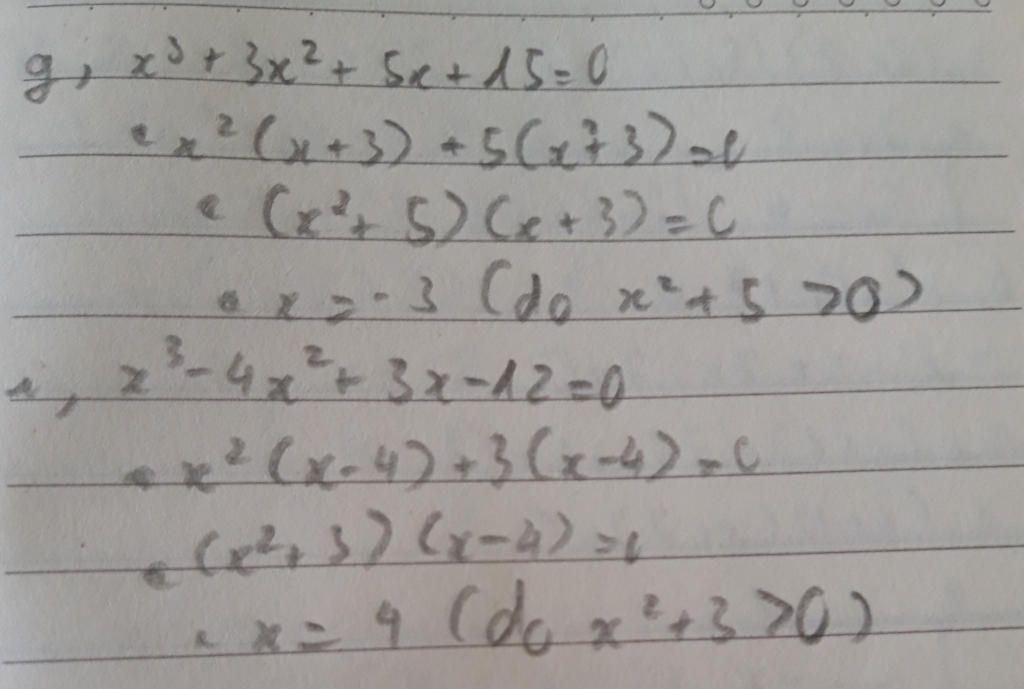 g, x³ + 3x² + 5x + 15 = 0
x² (x + 3) + 5(x² + 3) = 0
(x² + 5) (x + 3) = 0
x = -3 (do x² + 5 > 0)
x³ - 4x² + 3x - 12 = 0
x² (x - 4) + 3 (x - 4) = 0
(x² + 3) (x - 4) = 0
x = 4 (do x² + 3 > 0)